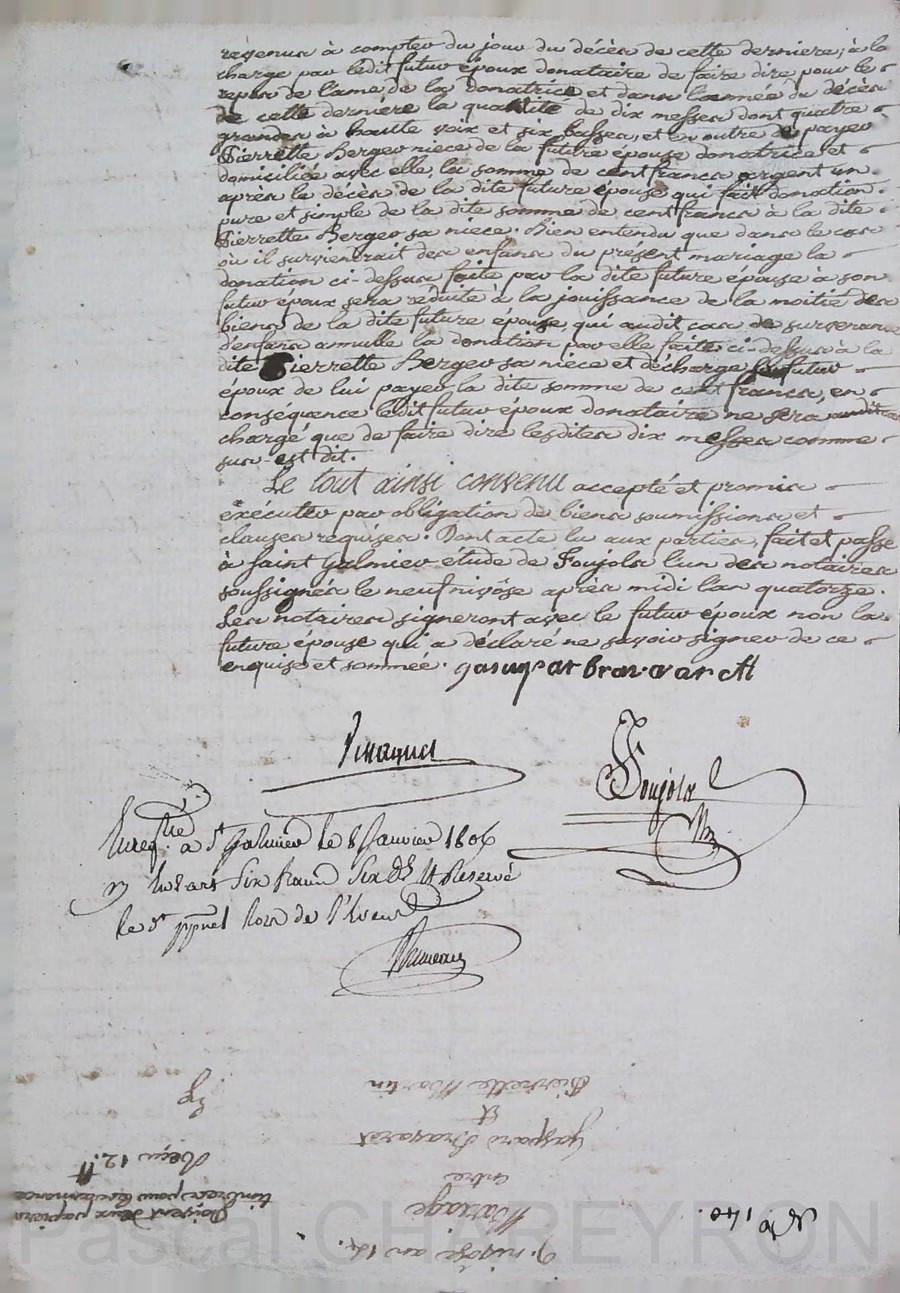 revenus à compter du jour du décès de cette derniere; à la
charge par ledit futur époux donataire de faire dire pour le
repos de l'ame de la donatrice et dans l'année du décès
de cette dernière la quantité de dix messes dont quatre
grandes à haute voix et six basses, et en outre de payer
Pierrette Berger niece de la future épouse donatrice et
domiciliée avec elle, la somme de cent francs argent un
après le décès de la dite future épouse qui fait donation
pure et simple de la dite somme de cent francs à la dite
Pierrette Berger sa niece. Bien entendu que dans le cas
où il surviendrait des enfans du présent mariage la
donation ci-dessus faite par la dite future épouse à son
futur époux sera réduite à la jouissance de la moitié des
biens de la dite future épouse, qui audit cas de survenance
d'enfans annulle la donation par elle faite ci-dessus à la
dite Pierrette Berger sa niece et décharge futur
époux de lui payer la dite somme de cent francs, en
conséquence ledit futur époux donataire ne sera audit cas
chargé que de faire dire lesdites dix messes comme
sus-est dit.
Le tout ainsi convenu accepté et promis
exécuter par obligation de biens soumissions et
clauses requises. Dont acte lu aux parties, fait et passé
à Saint Galmier étude de Foujols l'un des notaires
soussignés le neuf nivôse après midi l'an quatorze.
Les notaires signeront avec le futur époux non la
future épouse qui a déclaré ne savoir signer de ce
enquise et sommée. gaspar bravaret
Foujols
Nre
Enregtré à St Galmier le 8 Janvier 1806
Six francs Six Réservé
le dt ppnel lors de l'
No 140.
9. nivôse an 14.
Mariage
entre
Gaspard Bravaret
Et
Pierrette Martin
Doivent deux papiers
timbres pour
Reçu 12.